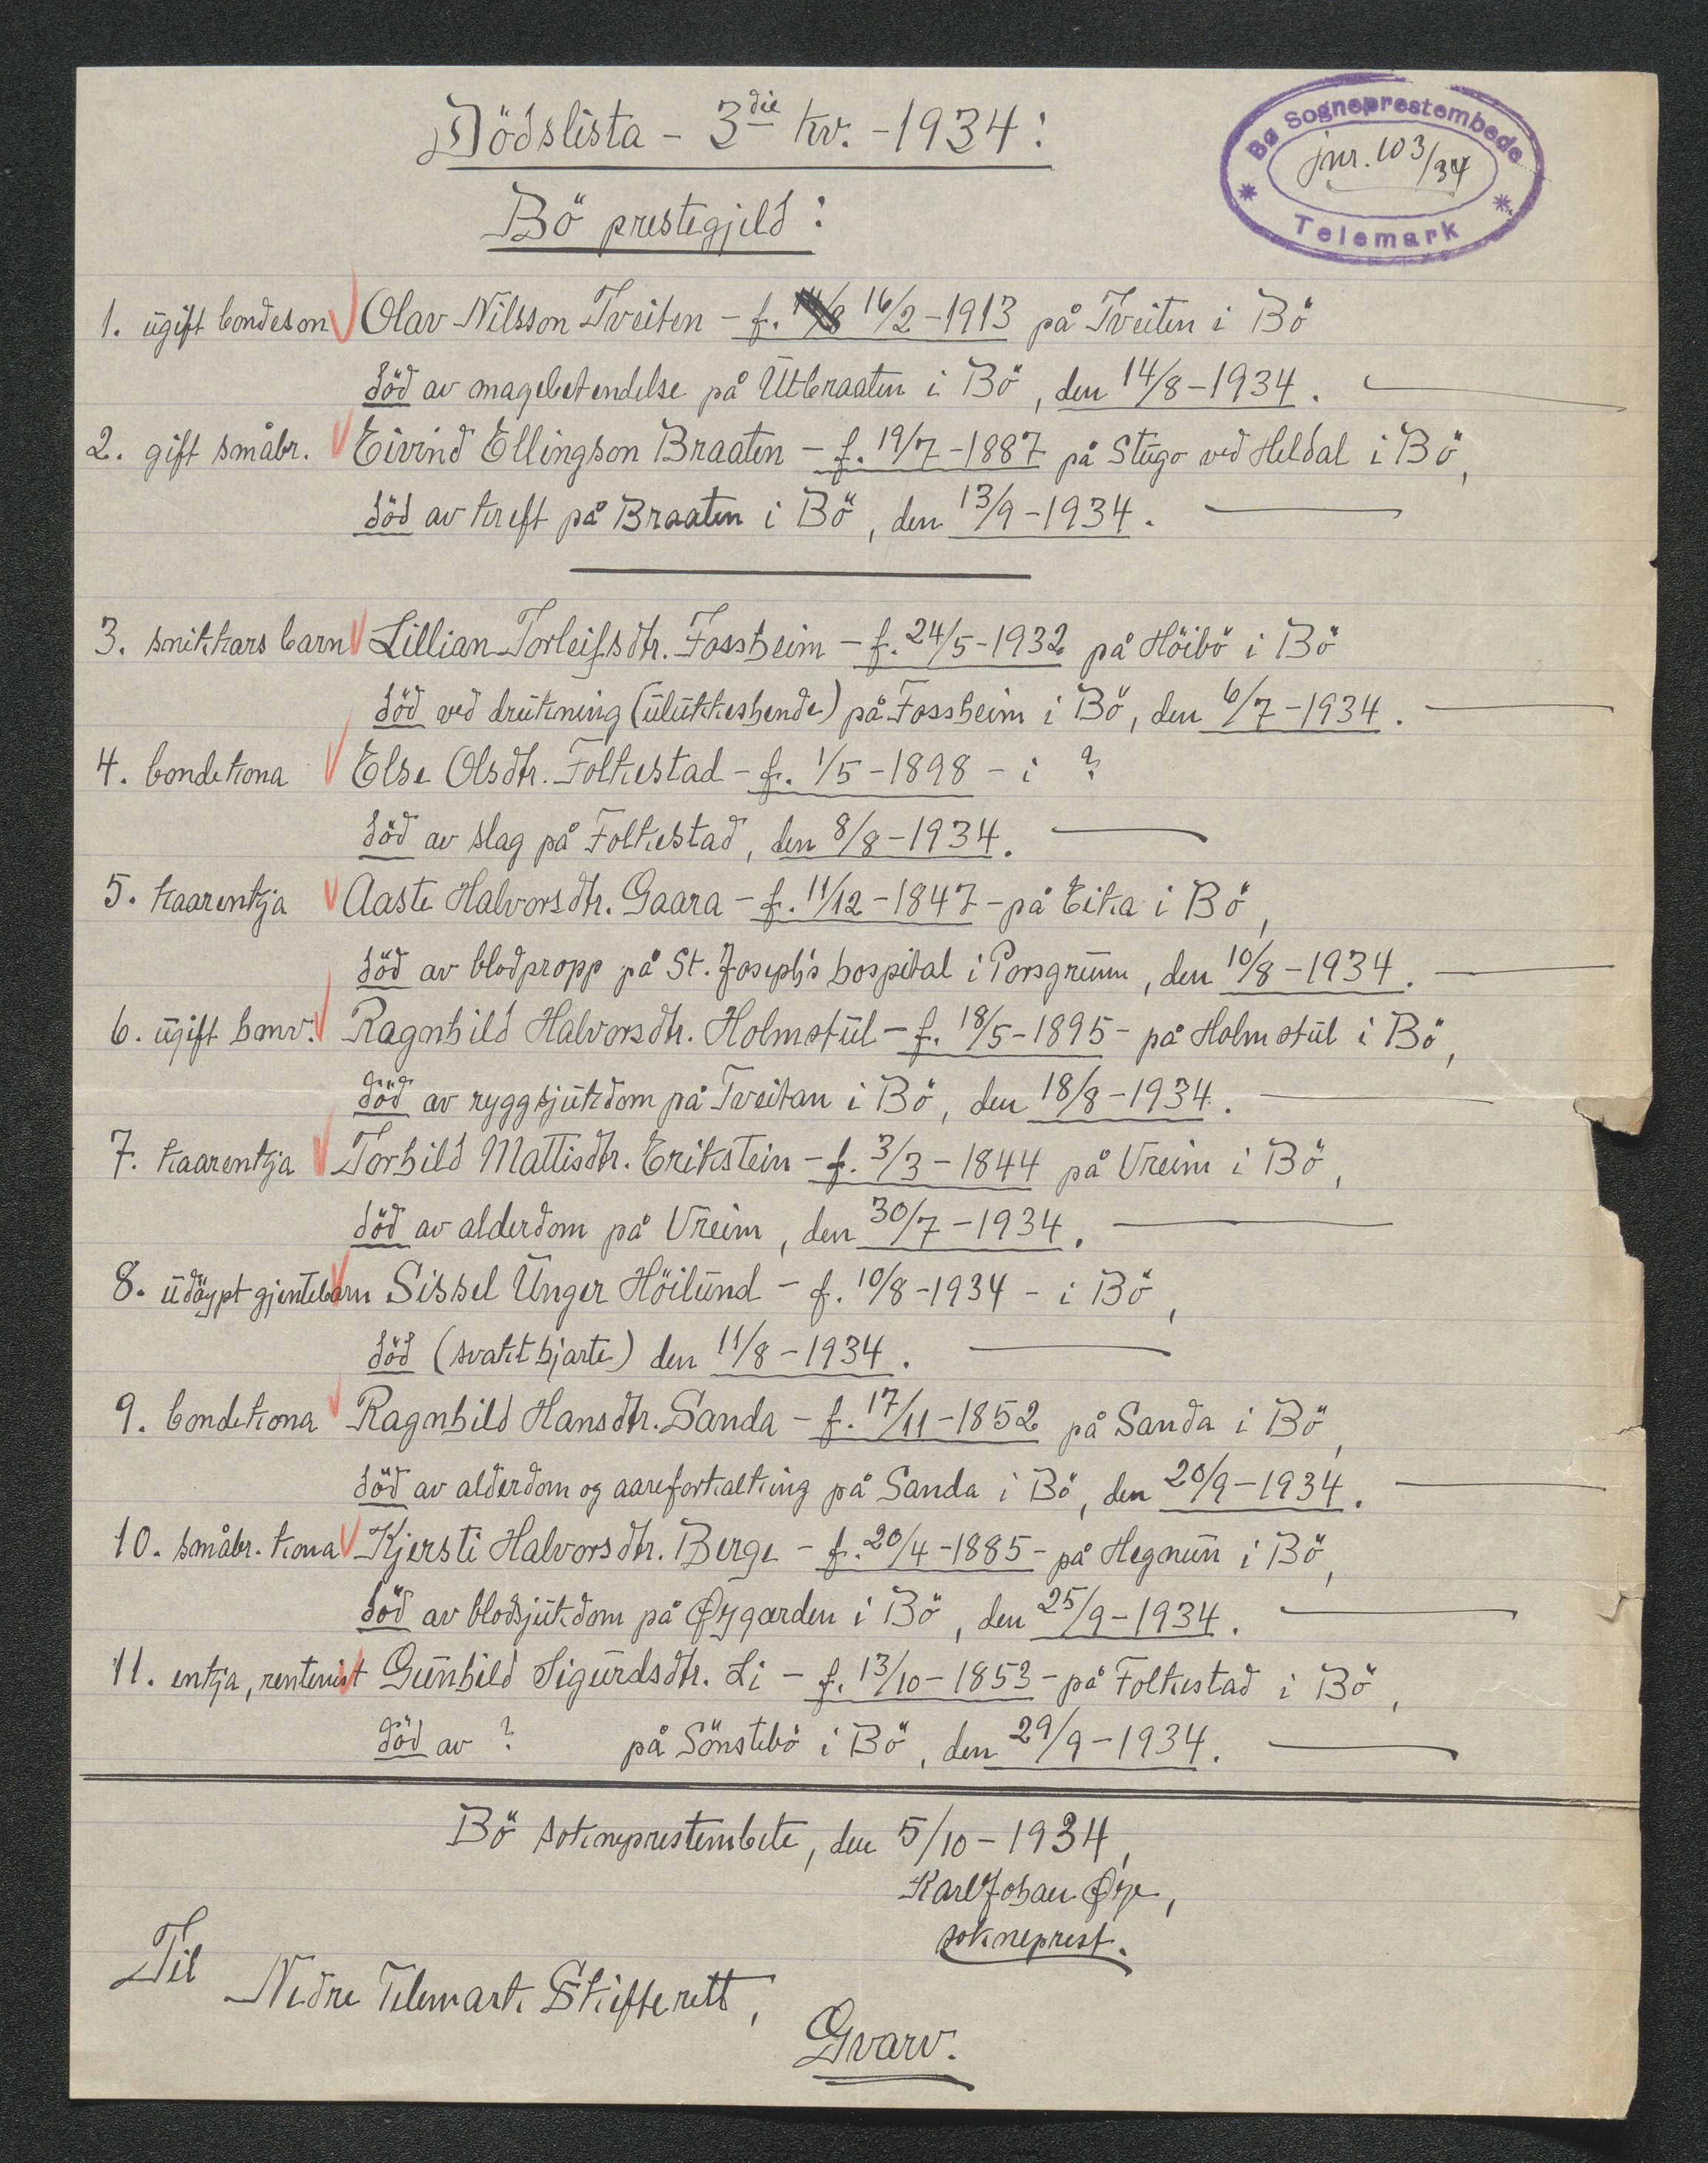 Dödslista - 3die kv. - 1934:
Bø Sogneprestembede
jnr. 103/34
Telemark
Bö prestegjeld:
1. ugift bondeson Olav Nilsson Tveiten - f. 16/2 - 1913 på Tveiten i Bö
död av magebetendelse på Utbraaten i Bö, den 14/8 - 1934.
2. gift småbr. Eivind Ellingson Braaten - f. 19/7 - 1887 på Stugo ved Heldal i Bö,
död av kreft på Braaten i Bö, den 13/9 - 1934.
3. snikkars barn Lillian Torleifsdtr. Fossheim - f. 24/5 - 1932 på Höibö i Bö
död ved drukning (ulukkeshende) på Fossheim i Bö, den 6/7 - 1934.
4. bondekona Else Olsdtr. Folkestad - f. 1/5 - 1898 - i ?
död av slag på Folkestad, den 8/8 - 1934.
5. kaarenkja Aaste Halvorsdtr. Gaara - f. 11/12 - 1847 - på Eika i Bö,
död av blodpropp på St. Joseph's hospital i Porsgrunn, den 10/8 - 1934.
6. ugift hmv. Ragnhild Halvorsdtr. Holmstul - f. 18/5 - 1895 - på Holmstul i Bö,
död av ryggsjukdom på Tveitan i Bö, den 18/8 - 1934.
7. kaarenkja Torhild Mattisdtr. Erikstein - f. 3/3 - 1844 på Vreim i Bö,
död av alderdom på Vreim, den 30/7 - 1934.
8. udöypt gjentebarn Sissel Unger Höilund - f. 10/8 - 1934 - i Bö,
död (svakt hjarte) den 11/8 - 1934.
9. bondekona Ragnhild Hansdtr. Sanda - f. 17/11 - 1852 på Sanda i Bö,
död av alderdom og aareforkalking på Sanda i Bö, den 20/9 - 1934.
10. småbr. kona Kjersti Halvorsdtr. Berge - f. 20/4 - 1885 - på Hegnun i Bö,
död av blodsjukdom på Øygarden i Bö, den 25/9 - 1934.
11. enkja, rentenist Gunhild Sigurdsdtr. Li - f. 13/10 - 1853 - på Folkestad i Bö,
död av ? på Sönstebö i Bö, den 29/9 - 1934.
Bö sokneprestembete, den 5/10 - 1934,
Karl Johan Øye,
sokneprest.
Til
Nedre Telemark Skifterett,
Gvarv.